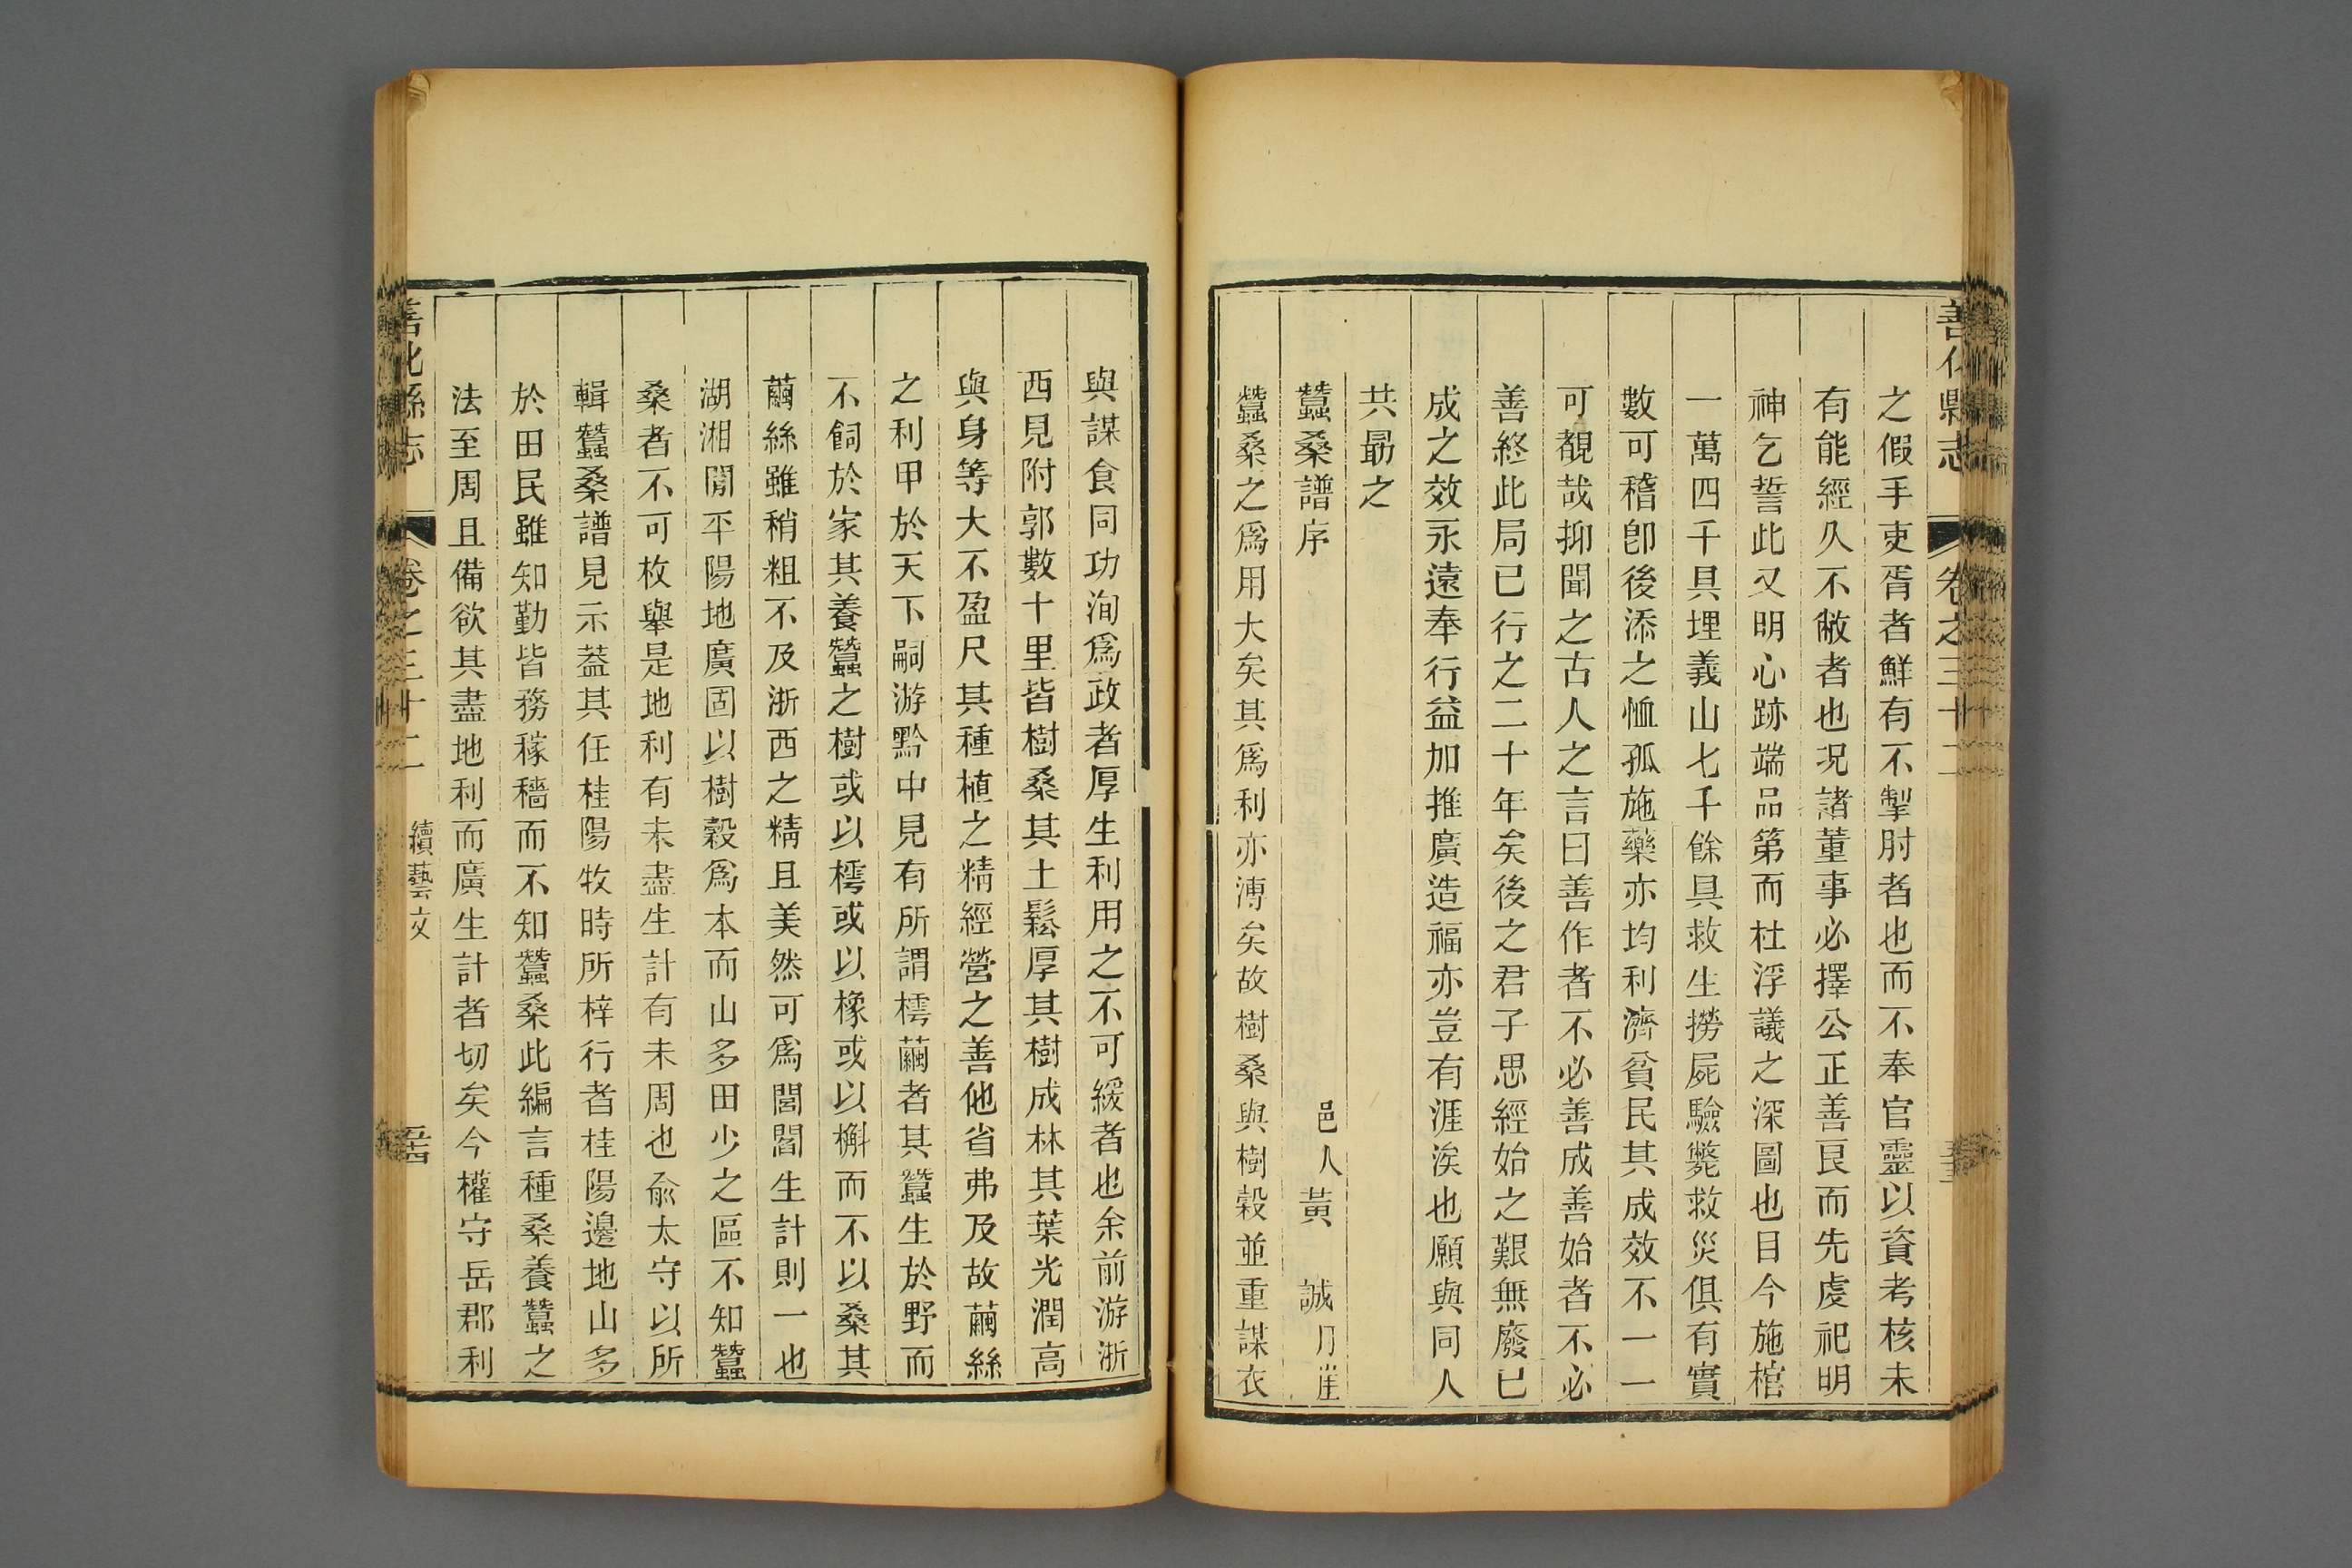 善化縣志 卷之三十二
之假手吏胥者鮮有不掣肘者也而不奉官靈以資考核未
有能經久不敝者也況諸董事必擇公正善良而先虔祀明
神乞誓此又明心跡端品第而杜浮議之深圖也目今施棺
一萬四千具埋義山七千餘具救生撈屍驗斃救災俱有實
數可稽卽後添之恤孤施藥亦均利濟貧民其成效不一一
可覩哉抑聞之古人之言曰善作者不必善成善始者不必
善終此局已行之二十年矣後之君子思經始之艱無廢已
成之效永遠奉行益加推廣造福亦豈有涯涘也願與同人
共勗之
蠶桑譜序 邑人黃 誠月崖
蠶桑之爲用大矣其爲利亦溥矣故樹桑與樹穀並重謀衣
與謀食同功洵爲政者厚生利用之不可緩者也余前游浙
西見附郭數十里皆樹桑其土鬆厚其樹成林其葉光潤高
與身等大不盈尺其種植之精經營之善他省弗及故繭絲
之利甲於天下嗣游黔中見有所謂樗繭者其蠶生於野而
不飼於家其養蠶之樹或以樗或以橡或以槲而不以桑其
繭絲雖稍粗不及浙西之精且美然可爲閭閻生計則一也
湖湘閒平陽地廣固以樹穀爲本而山多田少之區不知蠶
桑者不可枚舉是地利有未盡生計有未周也兪太守以所
輯蠶桑譜見示葢其任桂陽牧時所梓行者桂陽邊地山多
於田民雖知勤皆務稼穡而不知蠶桑此編言種桑養蠶之
法至周且備欲其盡地利而廣生計者切矣今權守岳郡利
善化縣志 卷之三十二 續藝文 五十四